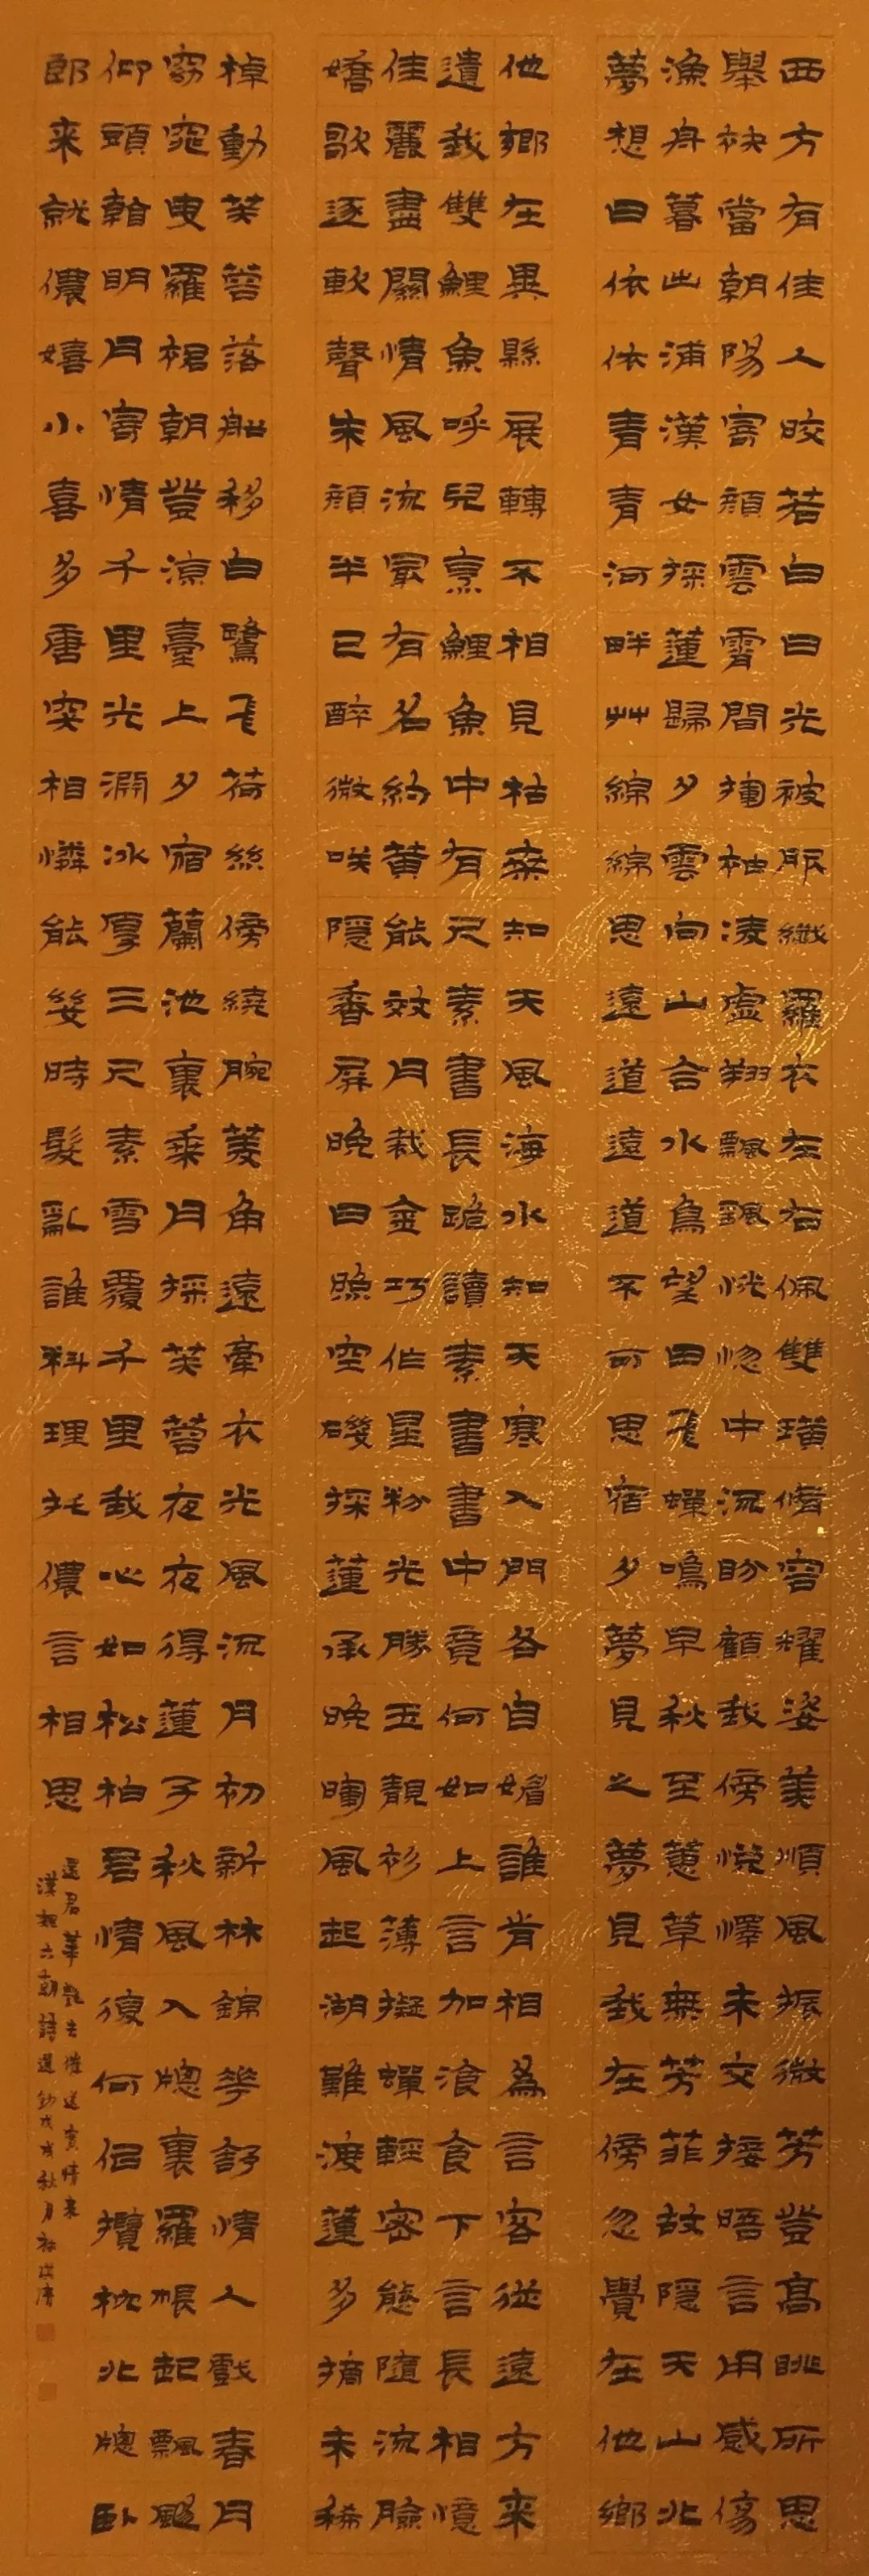 西方有佳人皎若白日光被服纖羅衣左右佩雙璜脩容耀姿美順風振微芳登高眺所思
舉袂當朝陽寄顏雲霄間揮袖淩虛翔飄颻恍惚中流盼顧我傍悅懌未交接晤言用感傷
漁舟暮出浦漢女採蓮歸夕雲向山合水鳥望田飛蟬鳴早秋至蕙草無芳菲故隱天山北
夢想日依依青青河畔艸綿綿思遠道遠道不可思宿夕夢見之夢見我在傍忽覺在他鄉
他鄉在異縣展轉不相見枯桒知天風海水知天寒入門各自媚誰肯相為言客從遠方來
遺我雙鯉魚呼兒烹鯉魚中有尺素書長跪讀素書書中竟何如上言加飡食下言長相憶
佳麗盡關情風流冣有名約黃能效月裁金巧作星粉光勝玉靚衫薄擬蟬輕密態隨流臉
嬌歌逐軟聲朱顏半已醉微咲隱香屏晚日照空磯採蓮承晚暉風起湖難渡蓮多摘未稀
棹動芙蓉落船移白鷺飛荷絲傍繞腕菱角遠牽衣光風流月初新林錦花舒情人戲春月
窈窕曳羅裙朝登涼臺上夕宿蘭池裏乘月採芙蓉夜夜得蓮子秋風入牕裏羅帳起飄颺
仰頭看明月寄情千里光淵冰厚三尺素雪覆千里我心如松柏君情復何似攬枕北牕臥
郎來就儂嬉小喜多唐突相憐能幾時髮亂誰料理托儂言相思
還君華艷去催送實情來
漢魏六朝詩選鈔戊戌秋月